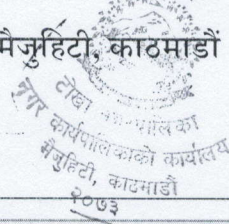 मैजुहिटी, काठमाडौं
टोखा नगरपालिका
नगर कार्यपालिकाको कार्यालय
मैजुहिटी, काठमाडौं
२०७३